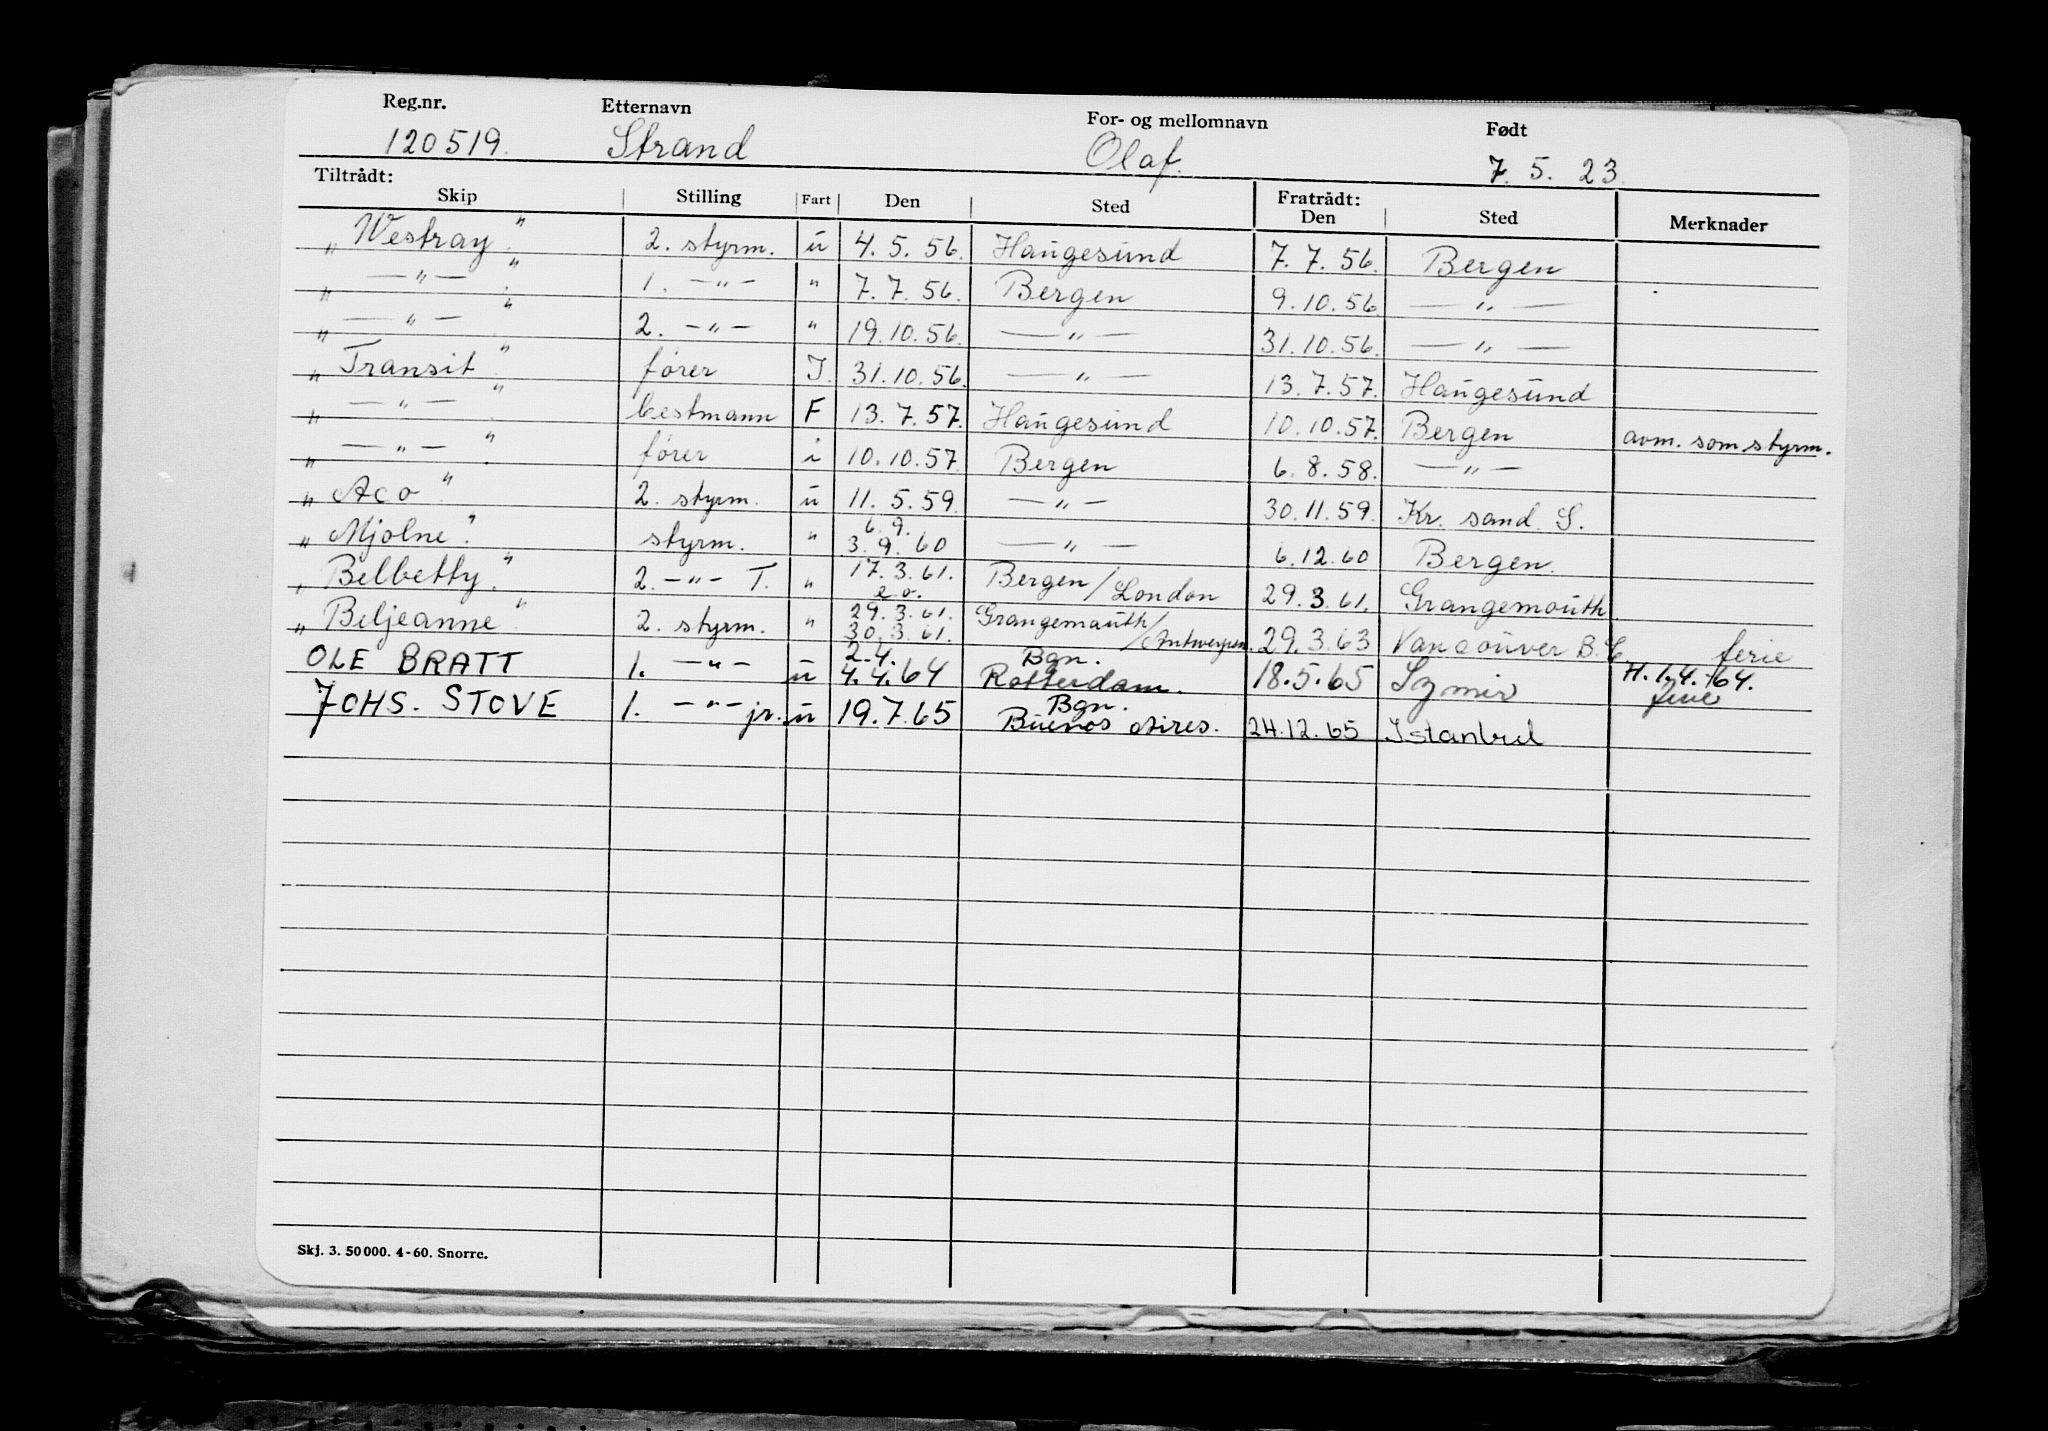 Reg.nr. Etternavn For- og mellomnavn Født
120519. Strand Olaf. 7. 5. 23.
Tiltrådt: Fratrådt:
Skip Stilling Fart Den Sted Den Sted Merknader
„ Westray." 2. styrm. u 4. 5. 56. Haugesund 7. 7. 56. Bergen
„ —"— " 1. —"— " 7. 7. 56. Bergen 9. 10. 56. —"—
„ —"— " 2. —"— " 19. 10. 56. —"— 31. 10. 56. —"—
„ Transit" fører I. 31. 10. 56. —"— 13. 7. 57. Haugesund
„ —"— " bestmann F 13. 7. 57. Haugesund 10. 10. 57. Bergen avm. som styrm.
„ —"— " fører i 10. 10. 57. Bergen 6. 8. 58. —"—
„ Aco" 2. styrm. u 11. 5. 59. —"— 30. 11. 59. Kr. sand. S.
„ Mjolne." styrm. " 6. 9. 3. 9. 60 —"— 6. 12. 60 Bergen.
„ Belbetty." 2. —"— T. " 17. 3. 61. e.o. Bergen/London 29. 3. 61. Grangemouth
„ Beljeanne" 2. styrm. " 29. 3. 61. 30. 3. 61. Grangemouth/Antwerpen 29. 3. 63 Vancouver B.C. ferie
OLE BRATT 1. —"— u 2.4. 4. 4. 64 Bgn. Rotterdam. 18. 5. 65 Izmir H. 1.4.-64. ferie
JOHS. STOVE 1. —"— jr. u 19. 7. 65 Bgn. Buenos Aires. 24. 12. 65 Istanbul
Skj. 3. 50 000. 4-60. Snorre.